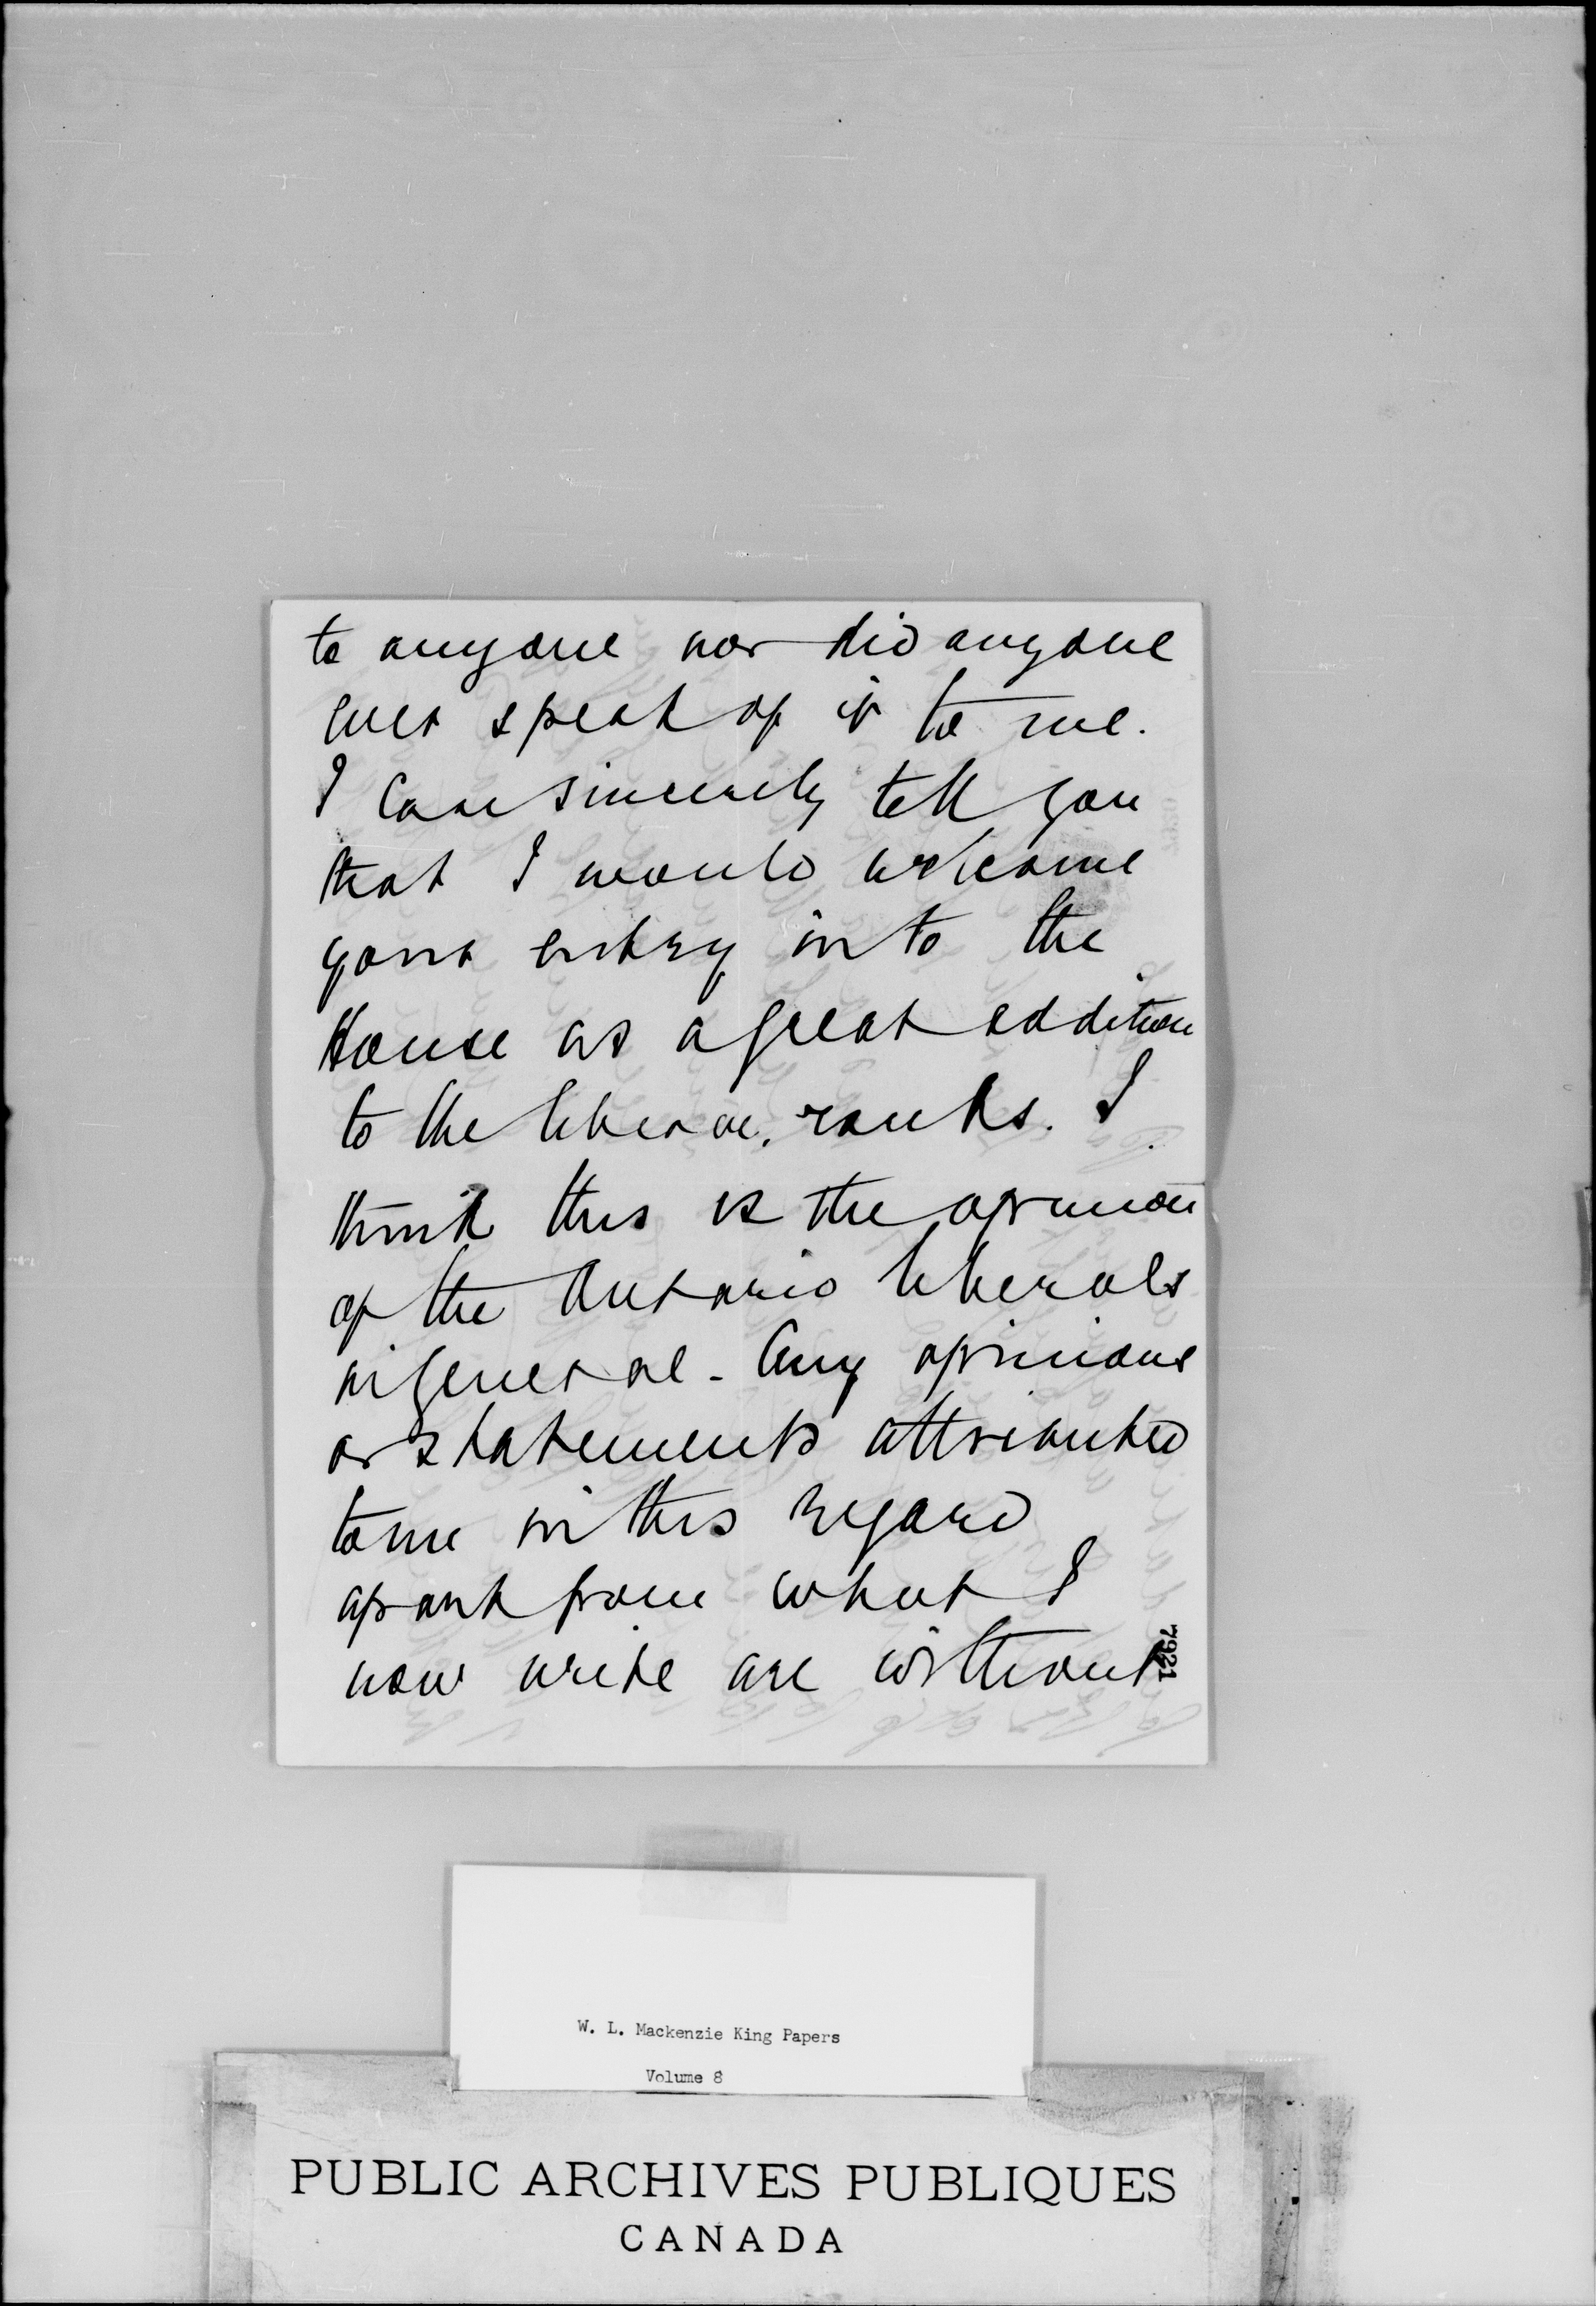 to anyone nor did anyone
ever speak of it to me.
I can sincerely tell you
that I would welcome
your entry into the
House as a great addition
to the liberal ranks. I
think this is the opinion
of the Ontario liberals
in general. Any opinions
or statements attributed
to me in this regard
apart from what I
now write are without
7921
W. L. Mackenzie King Papers
Volume 8
PUBLIC ARCHIVES PUBLIQUES
CANADA